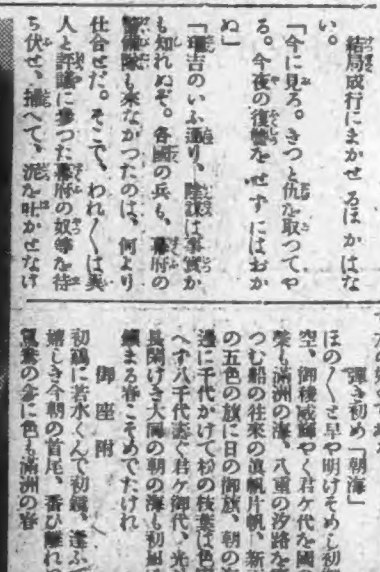 結局成行にまかせるほかはな
い。
「今に見ろ。きつと仇を取つてや
る。今夜の復讐をせずにはおか
ぬ」
「 吉のいふ通り、陰謀は事實か
も知れぬぞ。各國の兵も、幕府の
警備隊も來なかつたのは、何より
仕合せだ。そこで、われ〳〵は異
人と評議に參つた幕府の奴等を待
ち伏せ、捕へて、泥を吐かせなけ
彈き初め「朝海」
ほの〴〵と早や明けそめし初
空、御稜威輝やく君ケ代を國
榮も滿洲の海、八重の汐路を
つむ船の往來の眞帆片帆、新
の五色の旗に日の御旗、朝の
邊に千代かけて松の枝葉は色
へず八千代壽ぐ君ケ御代、光
長閑けき大同の朝の海も初
鎭まる春こそめでたけれ
御座附
初鶴に若水くんで初鏡、逢ふ
嬉しき今朝の首尾、番ひ離れ
鴛鴦の衾に色も滿洲の春